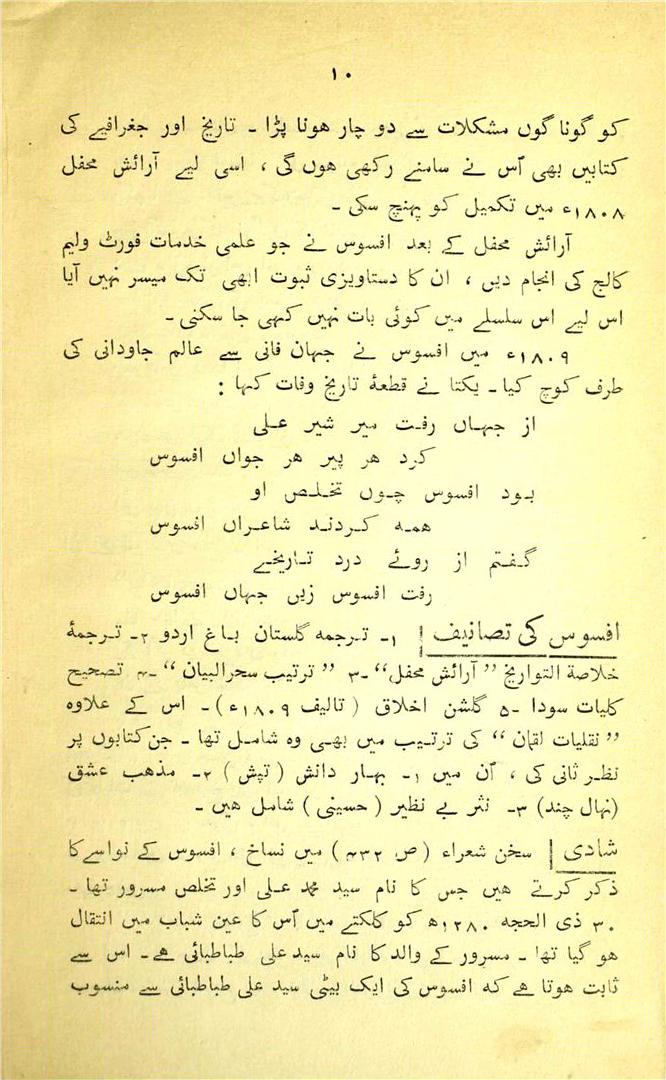 ۱۰
کو گونا گوں مشکلات سے دو چار ہونا پڑا ۔ تاریخ اور جغرافیے کی
کتابیں بھی اُس نے سامنے رکھی ہوں گی ، اسی لیے آرائش محفل
۱۸۰۸ء میں تکمیل کو پہنچ سکی ۔
آرائش محفل کے بعد افسوس نے جو علمی خدمات فورٹ ولیم
کالج کی انجام دیں ، ان کا دستاویزی ثبوت ابھی تک میسر نہیں آیا
اس لیے اس سلسلے میں کوئی بات نہیں کہی جا سکتی ۔
۱۸۰۹ء میں افسوس نے جہان فانی سے عالم جاودانی کی
طرف کوچ کیا ۔ یکتا نے قطعۂ تاریخ وفات کہا :
از جہاں رفت میر شیر علی
کرد ہر پیر ہر جواں افسوس
بود افسوس چوں تخلص او
ہمہ کردند شاعراں افسوس
گفتم از روئے درد تاریخے
رفت افسوس زیں جہاں افسوس
افسوس کی تصانیف | ۱۔ ترجمہ گلستان باغ اردو ۲۔ ترجمۂ
خلاصۃ التواریخ ”آرائش محفل“ ۔۳ ”ترتیب سحرالبیان“ ۔۴ تصحیح
کلیات سودا ۔۵ گلشن اخلاق ( تالیف ۱۸۰۹ء ) ۔ اس کے علاوہ
”نقلیات لقمان“ کی ترتیب میں بھی وہ شامل تھا ۔ جن کتابوں پر
نظر ثانی کی ، اُن میں ۱۔ بہار دانش ( تپش ) ۲۔ مذہب عشق
(نہال چند) ۳۔ نثر بے نظیر ( حسینی ) شامل ہیں ۔
شادی | سخن شعراء ( ص ۴۳۲ ) میں نساخ ، افسوس کے نواسے کا
ذکر کرتے ہیں جس کا نام سید محمد علی اور تخلص مسرور تھا ۔
۳۰ ذی الحجہ ۱۲۸۰ھ کو کلکتے میں اُس کا عین شباب میں انتقال
ہو گیا تھا ۔ مسرور کے والد کا نام سید علی طباطبائی ہے ۔ اس سے
ثابت ہوتا ہے کہ افسوس کی ایک بیٹی سید علی طباطبائی سے منسوب